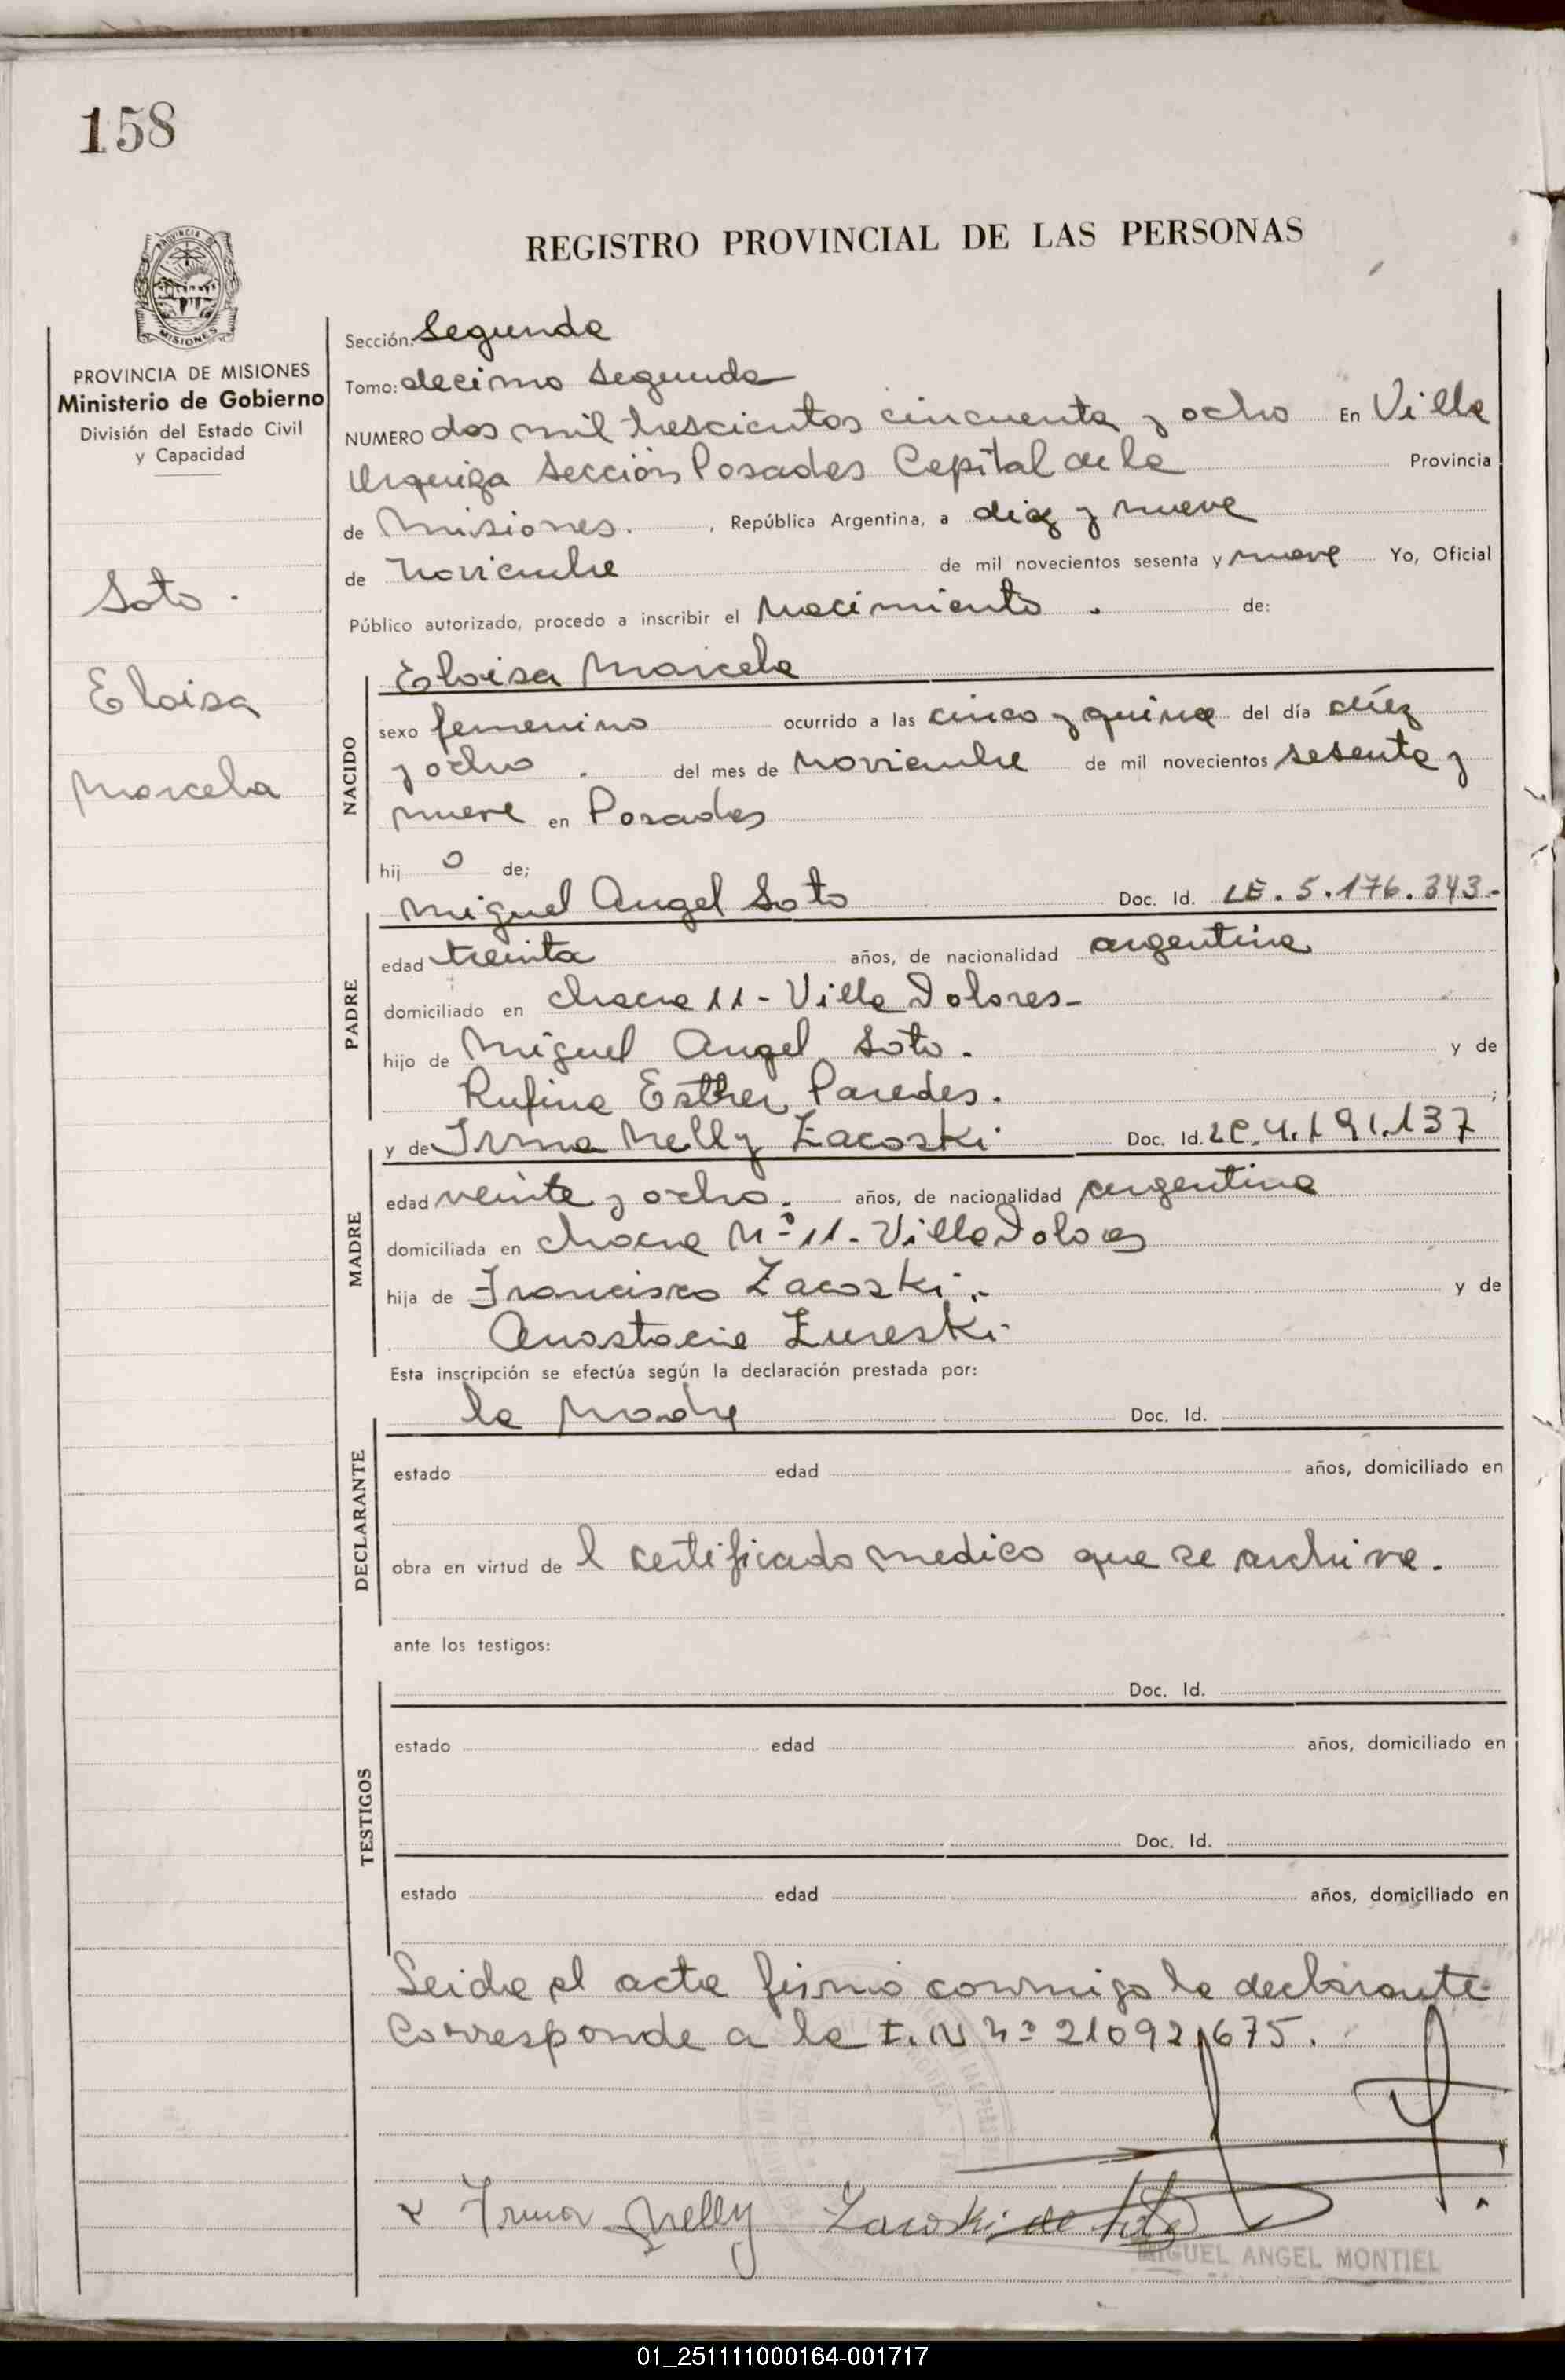 158
REGISTRO PROVINCIAL DE LAS PERSONAS
PROVINCIA DE MISIONES
Ministerio de Gobierno
División del Estado Civil
y Capacidad
Soto.
Eloisa
Marcela
Sección: Segunda
Tomo: decimo segunda
NUMERO dos mil trescientos cincuenta y ocho En Villa
Urquiza Sección Posadas Capital de la Provincia
de Misiones. , República Argentina, a diez y nueve
de Noviembre de mil novecientos sesenta y nueve Yo, Oficial
Público autorizado, procedo a inscribir el Nacimiento . de:
NACIDO
Eloisa Marcela
sexo femenino ocurrido a las cinco y quince del día diéz
y ocho . del mes de Noviembre de mil novecientos sesenta y
nueve en Posadas
hij o de;
PADRE
Miguel Angel Soto Doc. Id. LE. 5.176.343.-
edad treinta años, de nacionalidad argentina
domiciliado en chacra 11 - Villa Dolores-
hijo de Miguel Angel Soto. y de
Rufina Esther Paredes. ;
MADRE
y de Irma Nelly Zacoski Doc. Id. LC. 4.191.137
edad veinte y ocho. años, de nacionalidad argentina
domiciliada en chacra Nº 11 - Villa Dolores
hija de Francisco Zacoski.- y de
Anastacia Zureski-
Esta inscripción se efectúa según la declaración prestada por:
DECLARANTE
la Madre Doc. Id.
estado edad años, domiciliado en
obra en virtud de l certificado medico que se archiva.
ante los testigos:
TESTIGOS
Doc. Id.
estado edad años, domiciliado en
Doc. Id.
estado edad años, domiciliado en
Leida el acta firmó conmigo la declarante
Corresponde a la I. N Nº 21092675.
Irma Nelly Zacoski de Soto
MIGUEL ANGEL MONTIEL
01_251111000164-001717